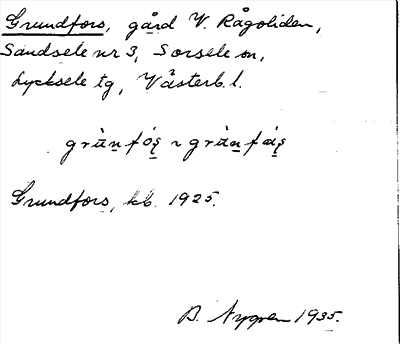 Grundfors, gård V. Rågoliden,
Sandsele nr 3, Sorsele sn,
Lycksele tg, Västerb. l.
Grundfors, kb. 1925.
B. Nygren 1935.